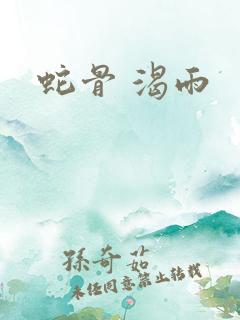 蛇骨 渴雨
孫奇茹
未经同意禁止转载